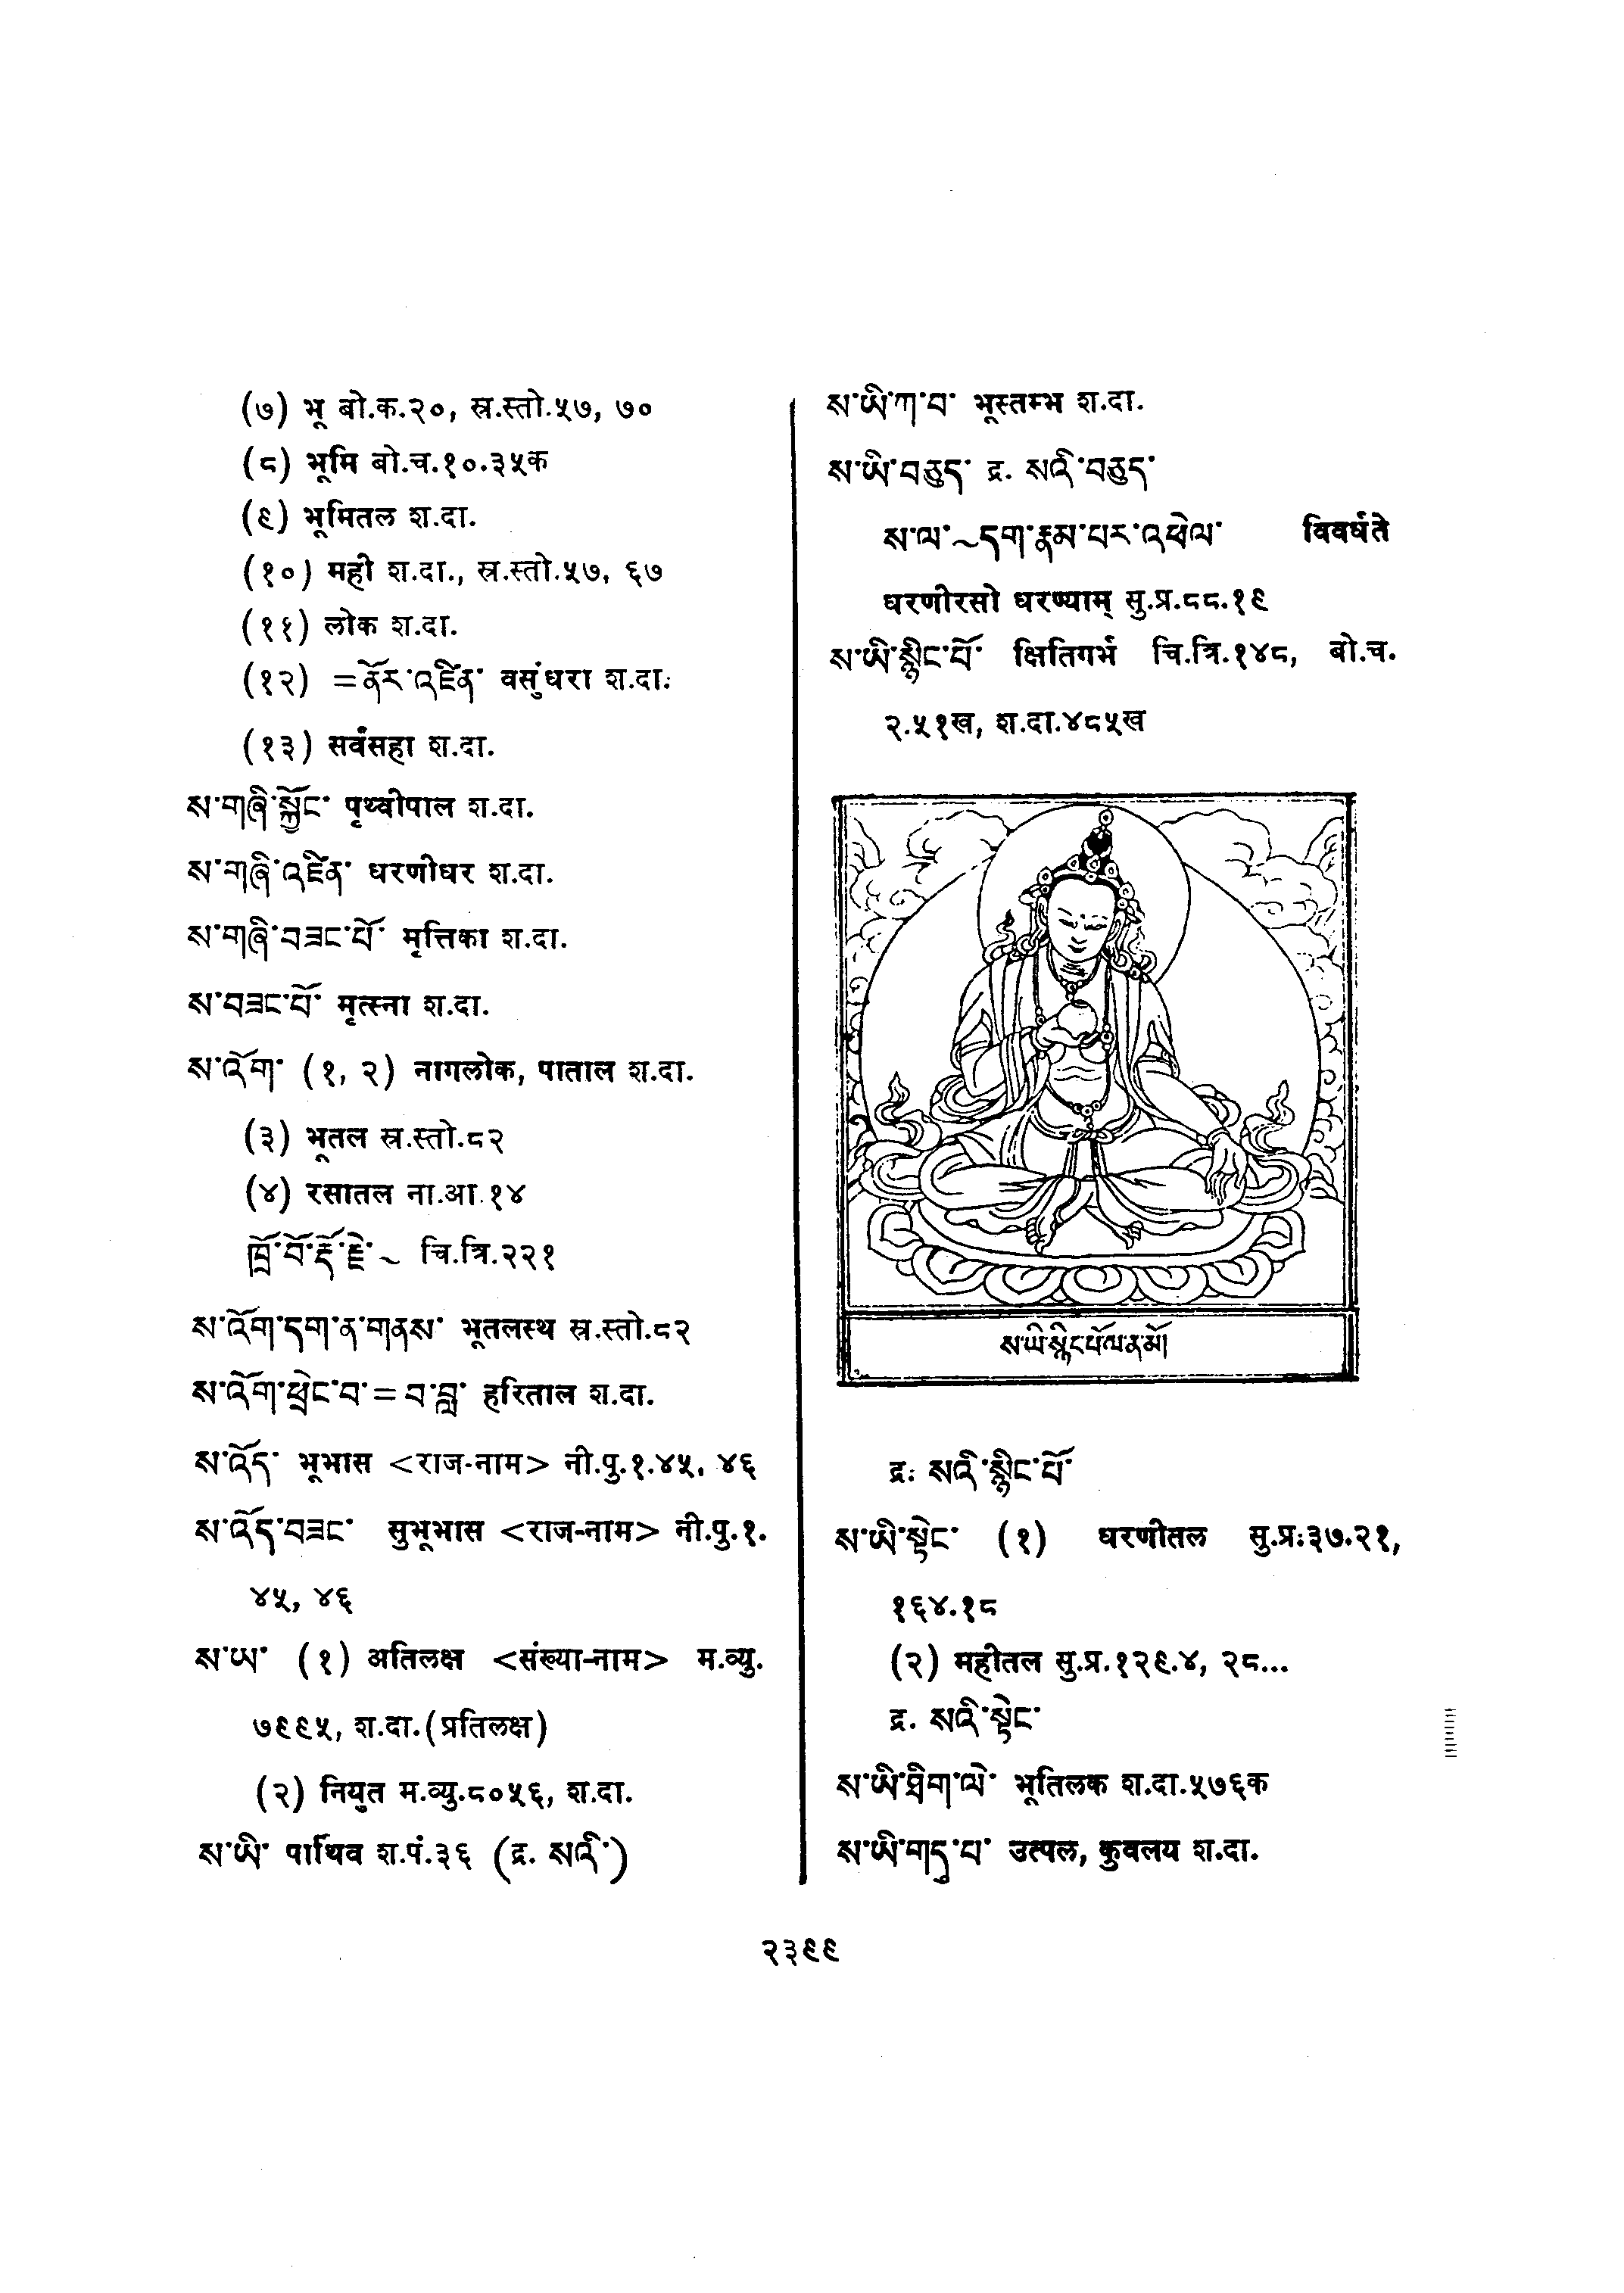 (७) भू बो.क.२०, स्र.स्तो.५७, ७०
(८) भूमि बो.च.१०.३५क
(९) भूमितल श.दा.
(१०) मही श.दा., स्र.स्तो.५७, ६७
(११) लोक श.दा.
(१२) =ནོར་འཛིན་ वसुंधरा श.दा.
(१३) सर्वंसहा श.दा.
ས་གཞི་སྐྱོང་ पृथ्वीपाल श.दा.
ས་གཞི་འཛིན་ धरणीधर श.दा.
ས་གཞི་བཟང་པོ་ मृत्तिका श.दा.
ས་བཟང་པོ་ मृत्स्ना श.दा.
ས་འོག་ (१, २) नागलोक, पाताल श.दा.
(३) भूतल स्र.स्तो.८२
(४) रसातल ना.आ.१४
ཁྲོ་བོ་རྡོ་རྗེ་~ चि.त्रि.२२१
ས་འོག་དག་ན་གནས་ भूतलस्थ स्र.स्तो.८२
ས་འོག་ཕྲེང་བ་=བ་བླ་ हरिताल श.दा.
ས་འོད་ भूभास <राज-नाम> नी.पु.१.४५, ४६
ས་འོད་བཟང་ सुभूभास <राज-नाम> नी.पु.१.
४५, ४६
ས་ཡ་ (१) अतिलक्ष <संख्या-नाम> म.व्यु.
७९९५, श.दा.(प्रतिलक्ष)
(२) नियुत म.व्यु.८०५६, श.दा.
ས་ཡི་ पार्थिव श.पं.३६ (द्र. སའི་)
ས་ཡི་ཀ་བ་ भूस्तम्भ श.दा.
ས་ཡི་བཅུད་ द्र. སའི་བཅུད་
ས་ལ་~དག་རྣམ་པར་འཕེལ་ विवर्धते
धरणीरसो धरण्याम् सु.प्र.८८.१९
ས་ཡི་སྙིང་པོ་ क्षितिगर्भ चि.त्रि.१४८, बो.च.
२.५१ख, श.दा.४८५ख
ས་ཡི་སྙིང་པོ་ལ་ན་མོ།
द्र. སའི་སྙིང་པོ་
ས་ཡི་སྟེང་ (१) धरणीतल सु.प्र.३७.२१,
१६४.१८
(२) महीतल सु.प्र.१२९.४, २८...
द्र. སའི་སྟེང་
ས་ཡི་ཐིག་ལེ་ भूतिलक श.दा.५७६क
ས་ཡི་གདུ་པ་ उत्पल, कुवलय श.दा.
२३९९